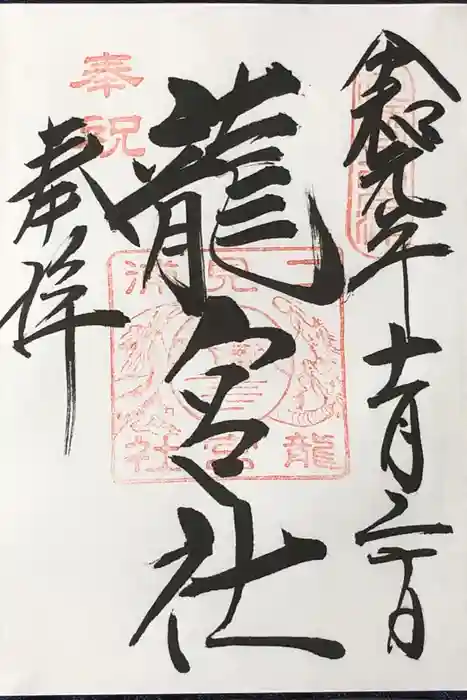 令和元年十一月二十日
奉祝
龍宮社
二見浦
龍宮社
奉拝